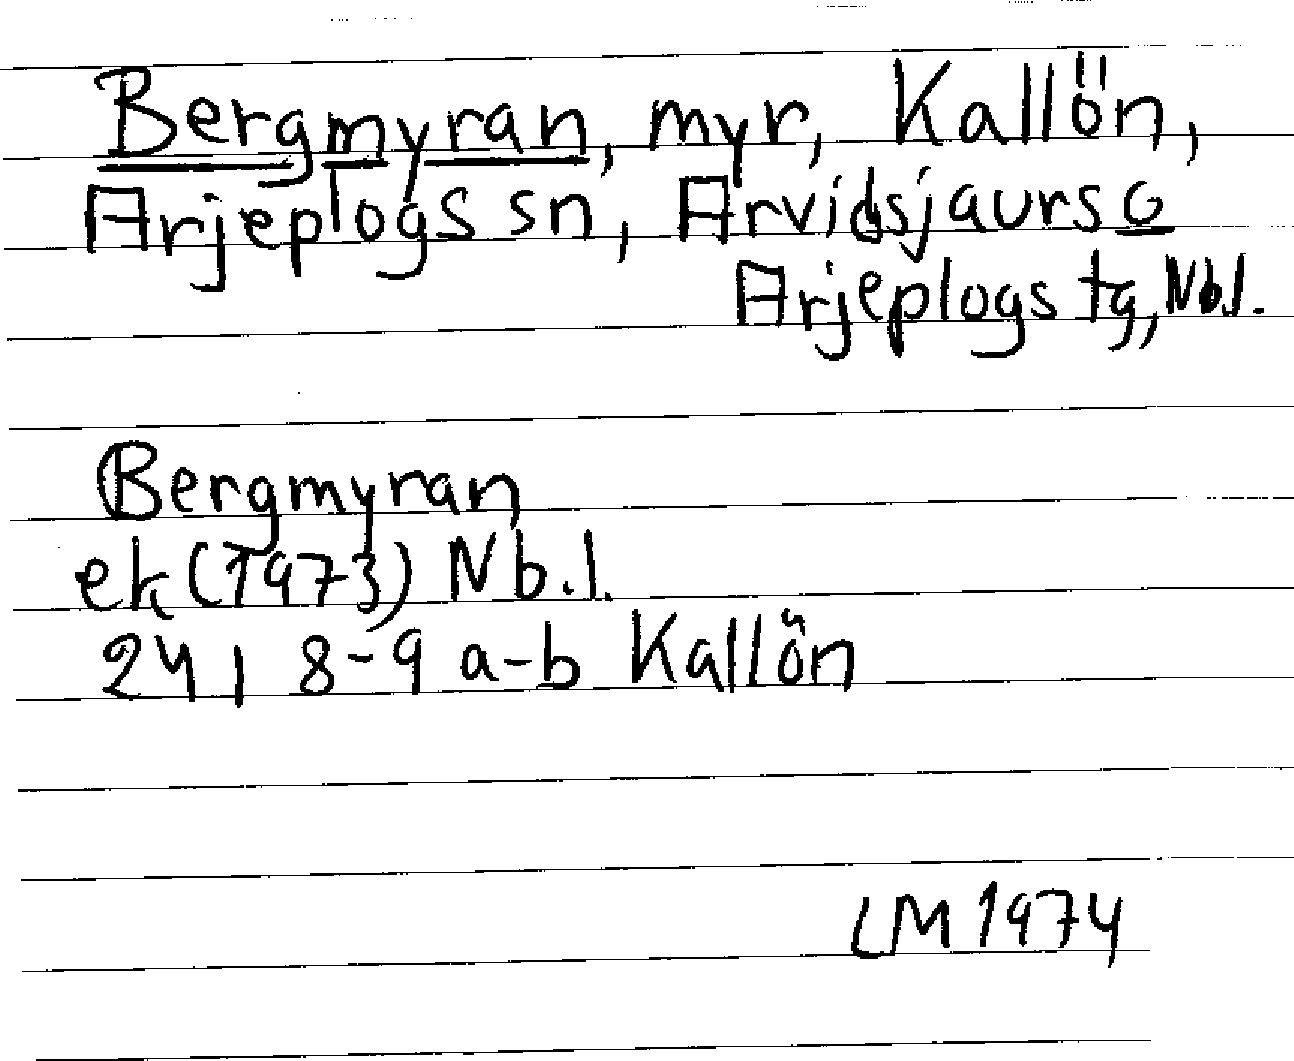 Bergmyran, myr, Kallön,
Arjeplogs sn, Arvidsjaurs o
Arjeplogs tg, Nbl.
Bergmyran
ek (1973) Nb.l.
24 I 8-9 a-b Kallön
LM 1974